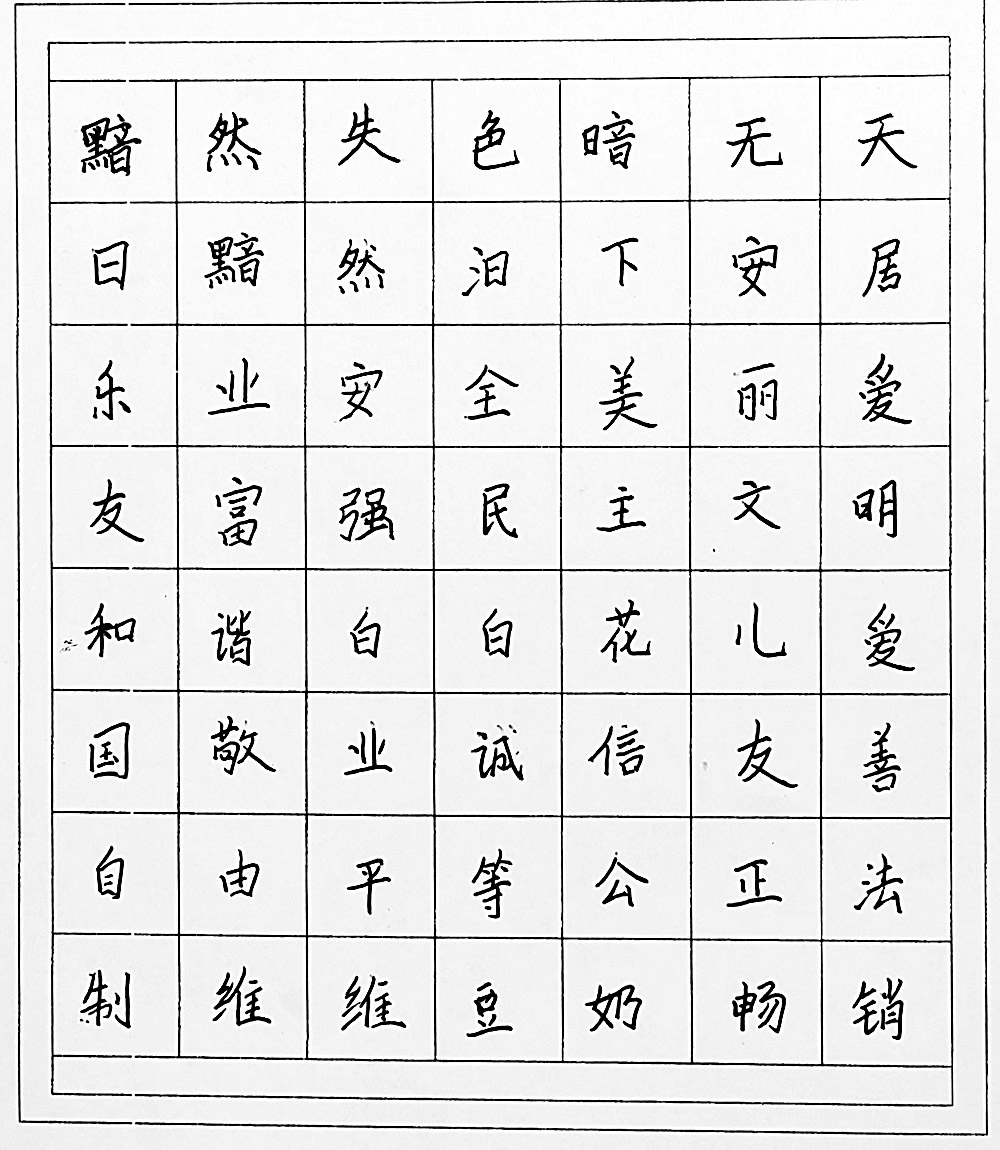 黯然失色暗无天
日黯然泪下安居
乐业安全美丽爱
友富强民主文明
和谐白白花儿爱
国敬业诚信友善
自由平等公正法
制维维豆奶畅销